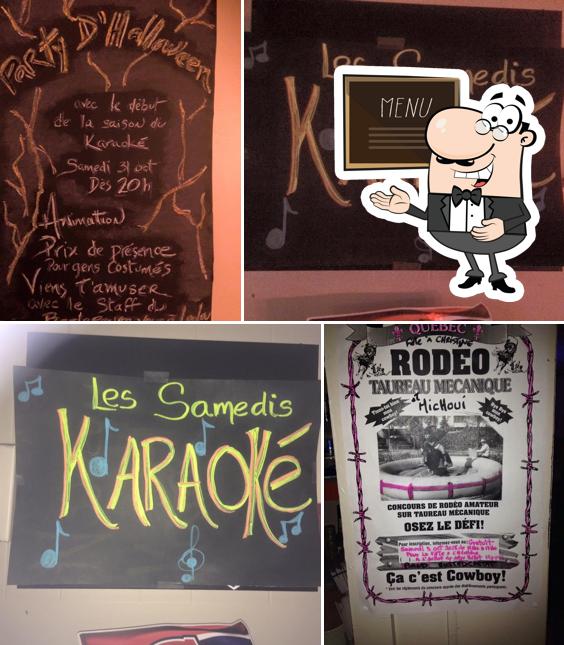 Party D'Halloween
avec le début
de la saison du
Karaoké
Samedi 31 oct
Dès 20h
Animation
Prix de présence
Pour gens costumés
Viens t'amuser
avec le Staff du
Les Samedis
MENU
Les Samedis
KARAOKé
QUÉBEC
RODEO
TAUREAU MECANIQUE
et Michoui
CONCOURS DE RODÉO AMATEUR
SUR TAUREAU MÉCANIQUE
OSEZ LE DÉFI!
Pour inscription, informez-vous au: Gratuit
Ça c'est Cowboy!